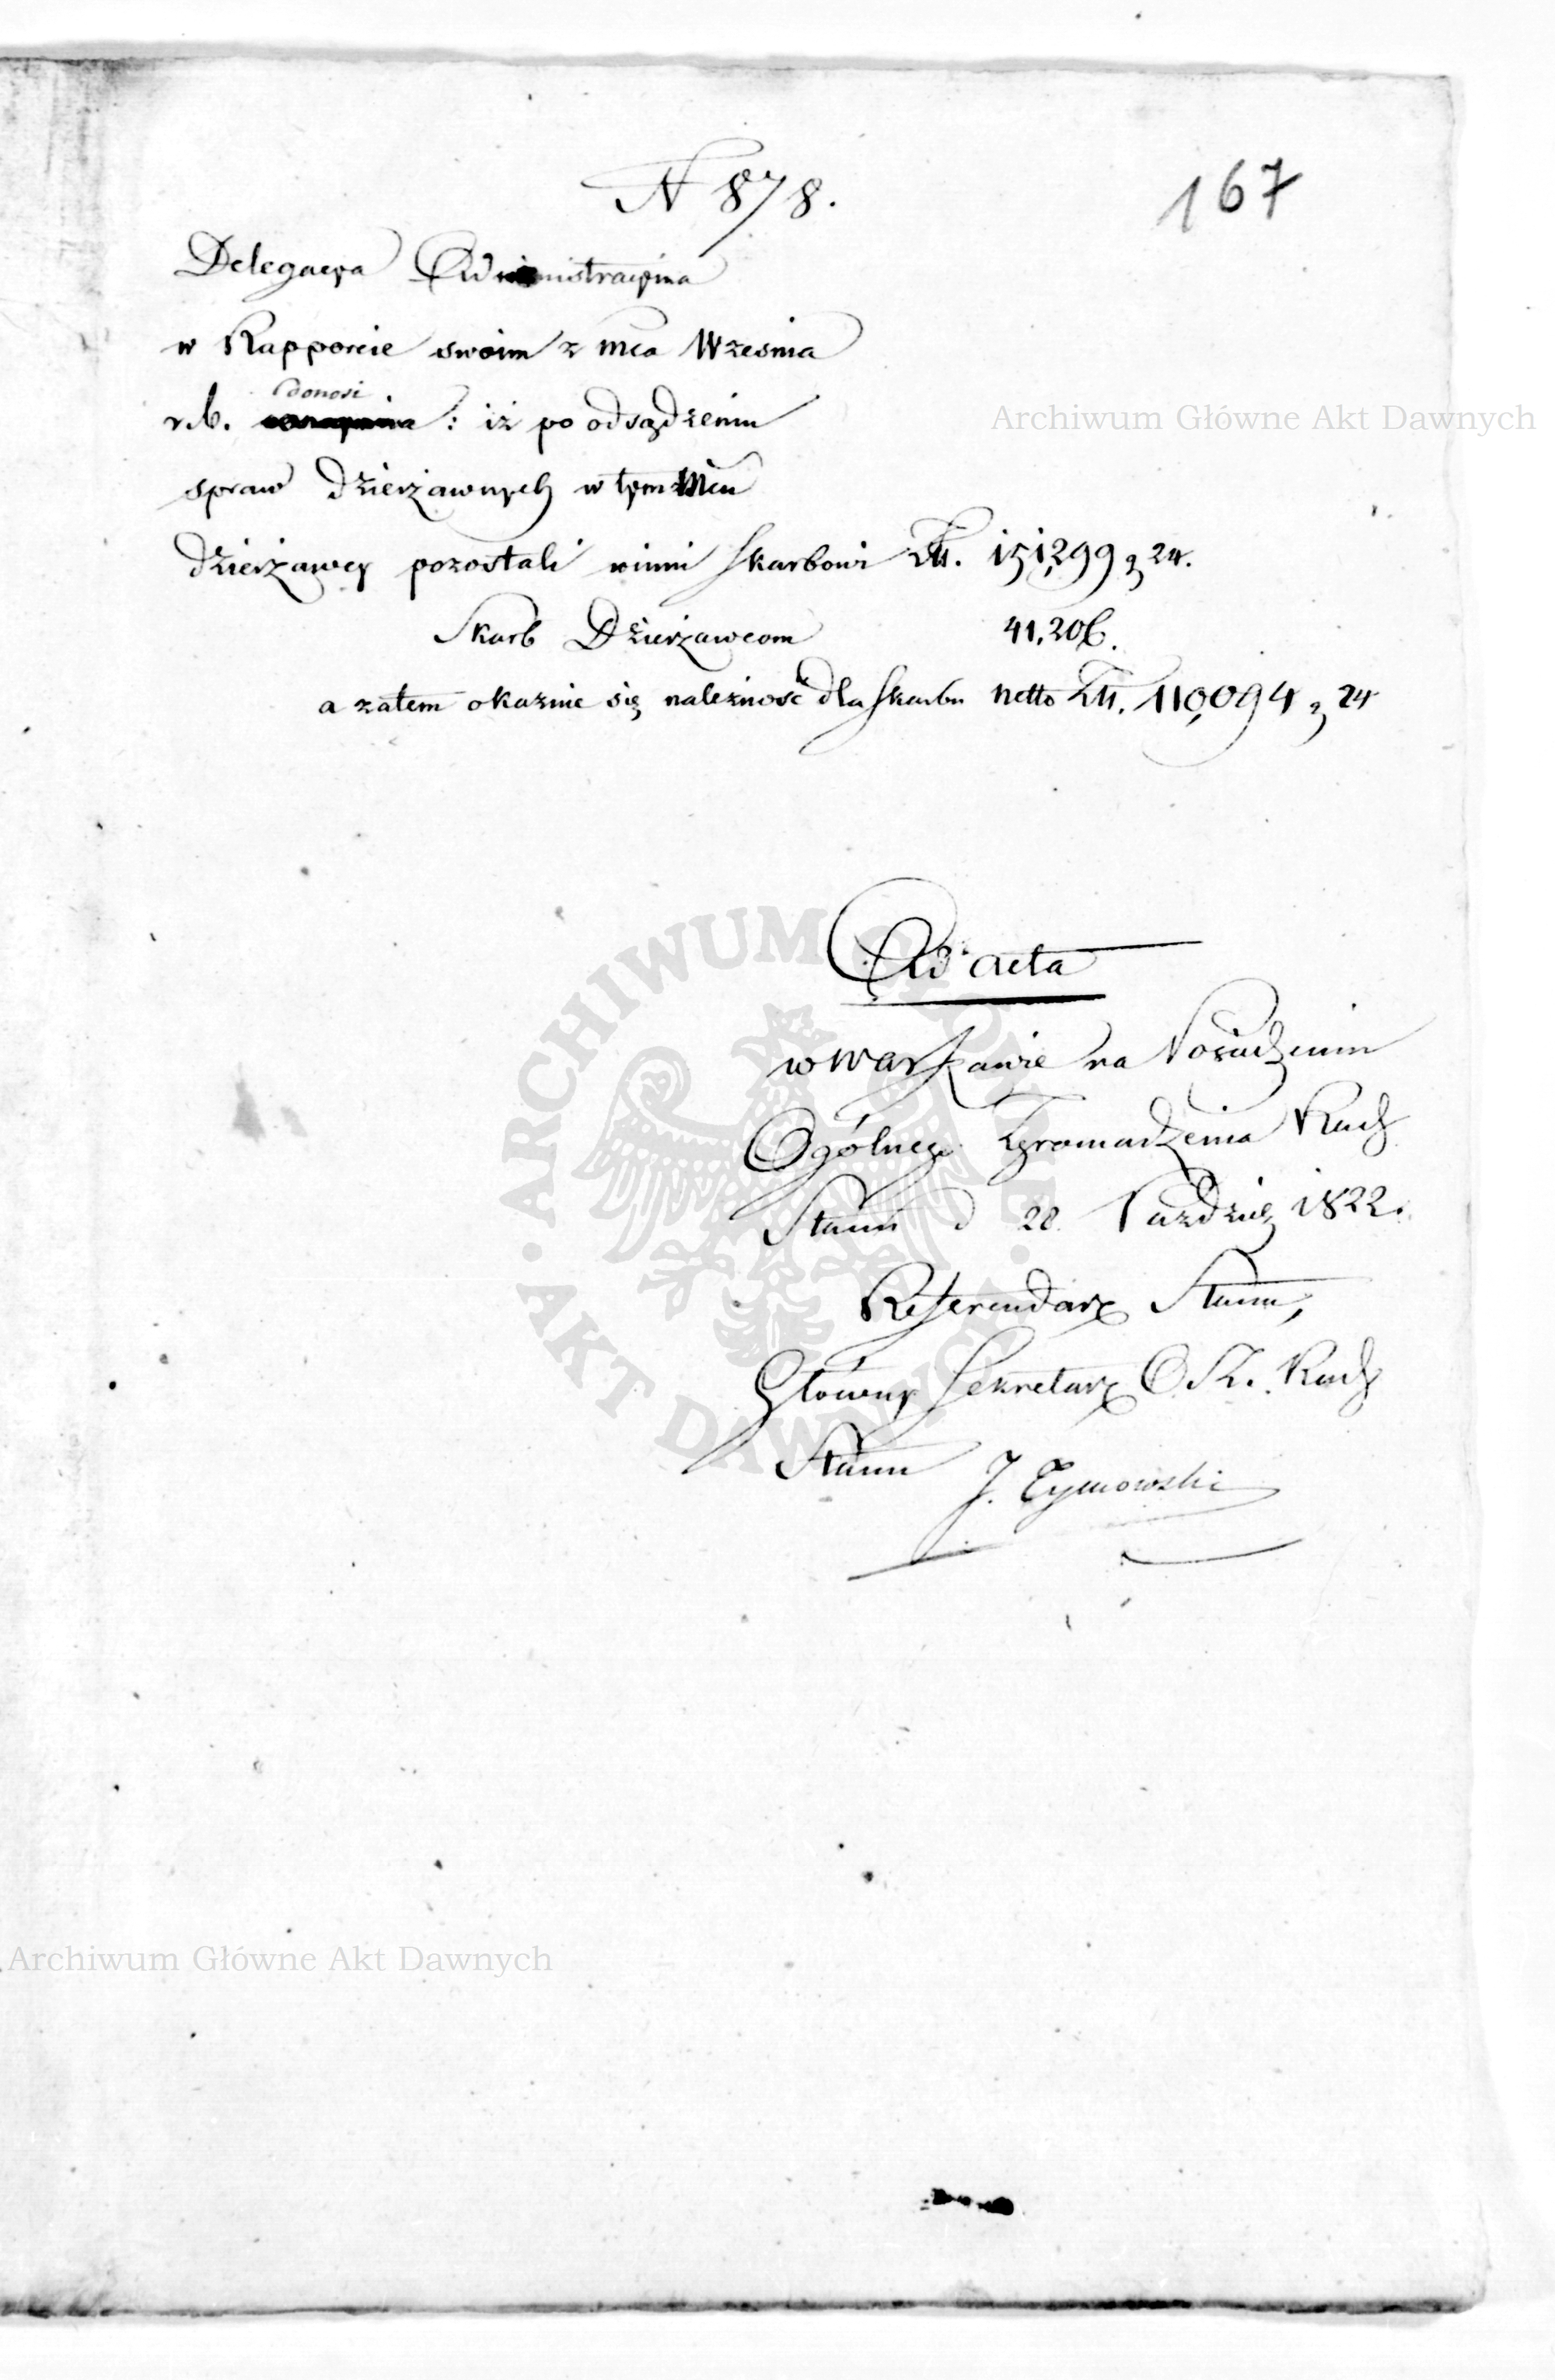 N 878.
167
Delegacya Administracyina
w Rapporcie swoim z mca Wrzesnia
donosi
r.b. : iż po odsądzeniu
spraw dzierżawnych w tym Mcu
dzierżawcy pozostali winni Skarbowi Złł. 151,299 g 24.
Skarb Dzierżawcom 41,206.
a zatem okazuie się należność dla Skarbu netto Złł. 110,094 g 24
Ad acta
w Warszawie na Posiedzeniu
Ogólnego Zgromadzenia Rady
Stanu d 28 Paździer 1822.
Referendarz Stanu,
Główny Sekretarz O Z. Rady
Stanu J. Tymowski
Archiwum Główne Akt Dawnych
ARCHIWUM GŁÓWNE AKT DAWNYCH
Archiwum Główne Akt Dawnych